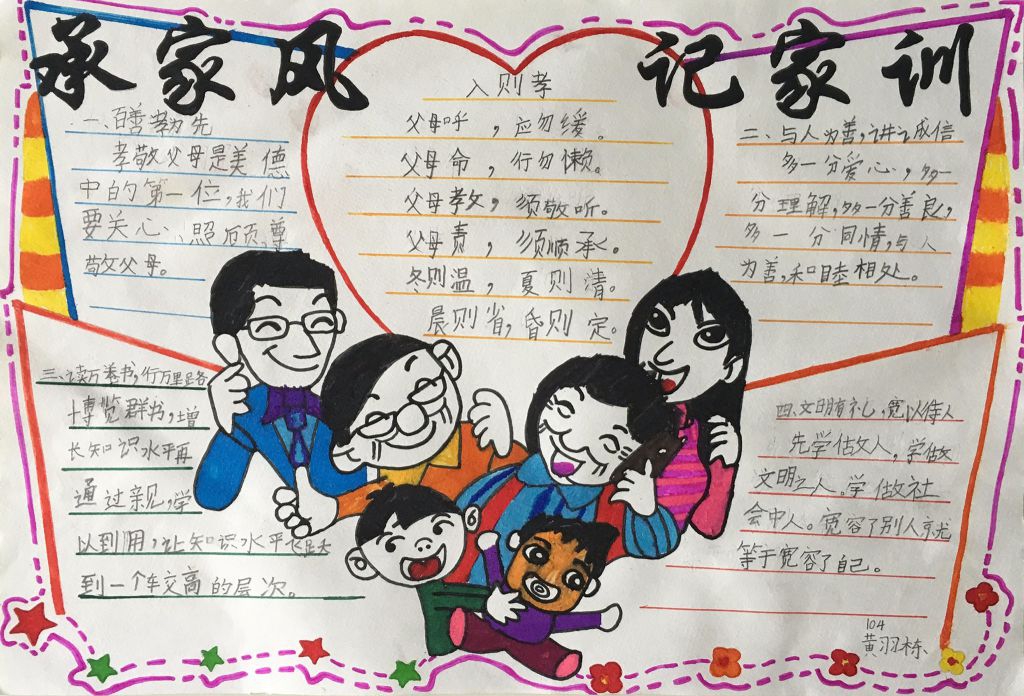 承家风 记家训
一、百善孝为先
孝敬父母是美德
中的第一位，我们
要关心、照顾、尊
敬父母。
入则孝
父母呼，应勿缓。
父母命，行勿懒。
父母教，须敬听。
父母责，须顺承。
冬则温，夏则清。
晨则省，昏则定。
二、与人为善，讲诚信
多一分爱心，多一
分理解，多一分善良，
多一分同情，与人
为善，和睦相处。
三、读万卷书，行万里路
博览群书，增
长知识水平再
通过亲见，学
以到用，让知识水平飞跃
到一个较高的层次。
四、文明有礼，宽以待人
先学做人，学做
文明之人。学做社
会中人。宽容了别人就
等于宽容了自己。
104
黄羽栋